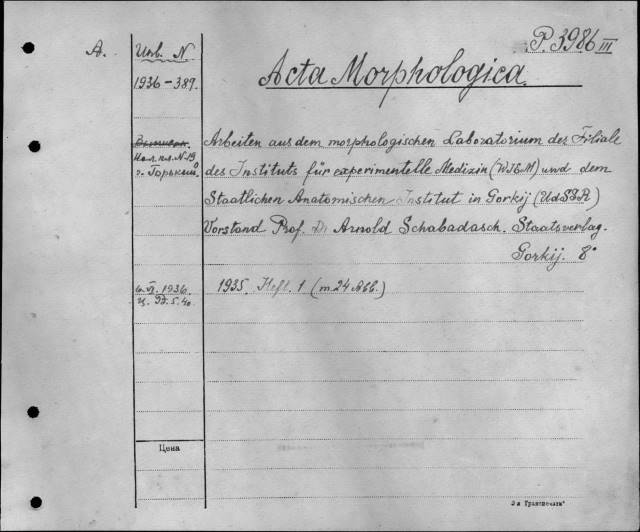 P. 3986 III
A.
Инв. N
1936-389.
Acta Morphologica.
Arbeiten aus dem morphologischen Laboratorium der Filiale
des Instituts für experimentelle Medizin (WIEM) und dem
Staatlichen Anatomischen Institut in Gorkij (UdSSR)
Vorstand Prof. Dr Arnold Schabadasch. Staatsverlag.
Gorkij. 8°
г. Горький
6.VI.1936.
1935. Heft. 1 (m. 24 Abb.)
Цена